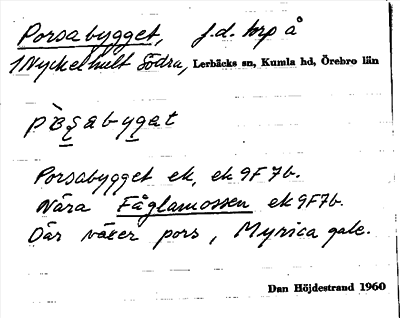 Porsabygget, f.d. torp å
1 Nyckelhult Södra, Lerbäcks sn, Kumla hd, Örebro län
Porsabygget ek, ek 9F 7b.
Nära Fåglamossen ek 9F7b.
Där växer pors, Myrica gale.
Dan Höjdestrand 1960